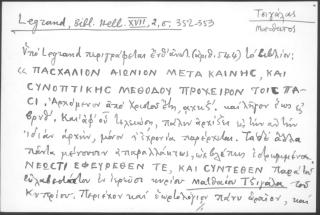 Legrand, Bibl. Hell. XVII, 2, σ. 352-353
Τσιγάλας
Ματθαῖος
Ὑπὸ Legrand περιγράφεται (ἀριθ. 544) τὸ βιβλίον:
« ΠΑΣΧΑΛΙΟΝ ΑΙΩΝΙΟΝ ΜΕΤΑ ΚΑΙΝΗΣ, ΚΑΙ
ΣΥΝΟΠΤΙΚΗΣ ΜΕΘΟΔΟΥ ΠΡΟΧΕΙΡΟΝ ΤΟΙΣ ΠΑ-
ΣΙ. Ἀρχόμενον ἀπὸ Χριστοῦ ἔτη, καὶ λῆγον ἕως
Καὶ ἀφ' οὗ πάλιν ἀρχίζει
ἰδίαν ἀρχήν, μόνον παρέρχεται. Τὰ δὲ ἄλλα
πάντα μένουσιν ἀπαράλλακτα, ὡς βλέπεις
ΝΕΩΣΤΙ ΕΦΕΥΡΕΘΕΝ ΤΕ, ΚΑΙ ΣΥΝΤΕΘΕΝ παρὰ τοῦ
εὐλαβεστάτου ἐν ἱερεῦσι κυρίου Ματθαίου Τζιγάλα τοῦ
Κυπρίου. Περιέχον καὶ ὡρολόγιον πάνυ ὡραῖον, καὶ